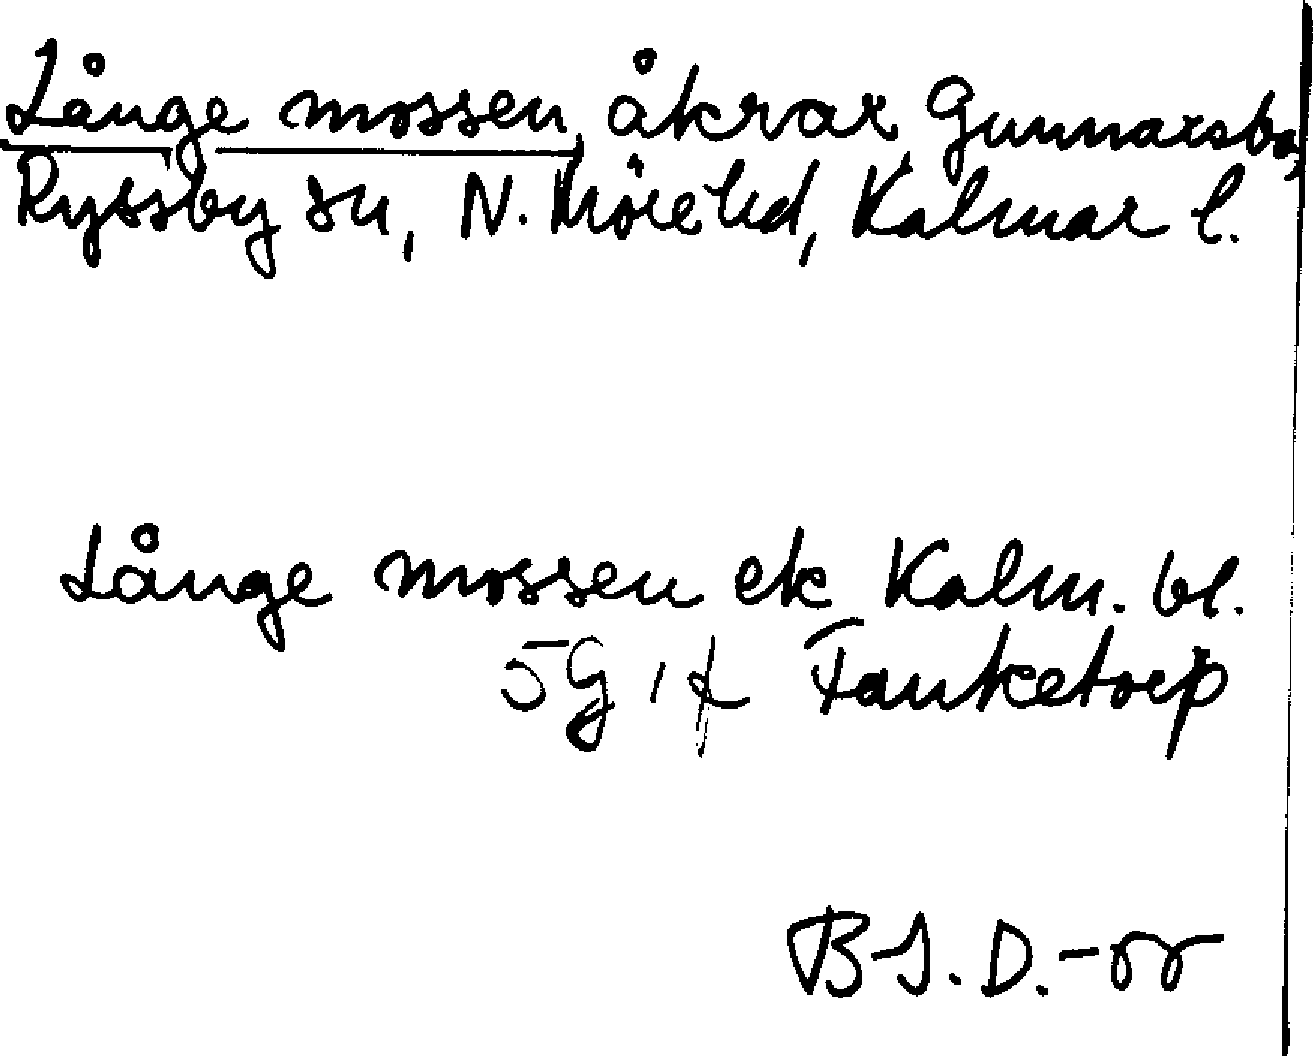 Långe mossen, åkrar, Gunnarsbo,
Ryssby sn, N. Möre hd, Kalmar l.
Långe mossen ek Kalm. bl.
5G 1f Tanketorp
B-J. D. -55